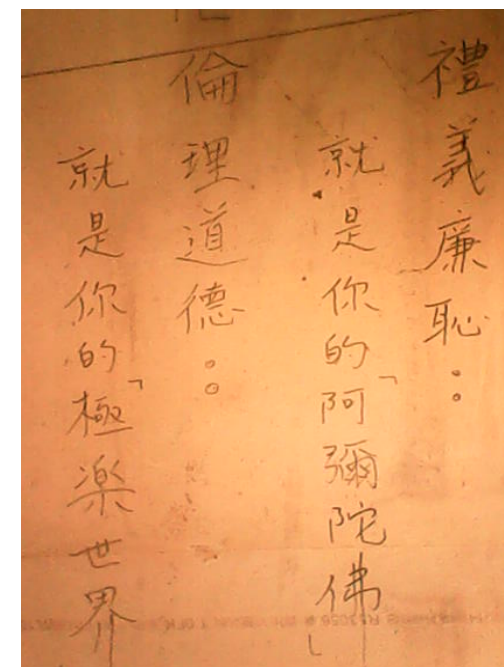 禮義廉恥：
就是你的「阿彌陀佛」
倫理道德：
就是你的「極楽世界